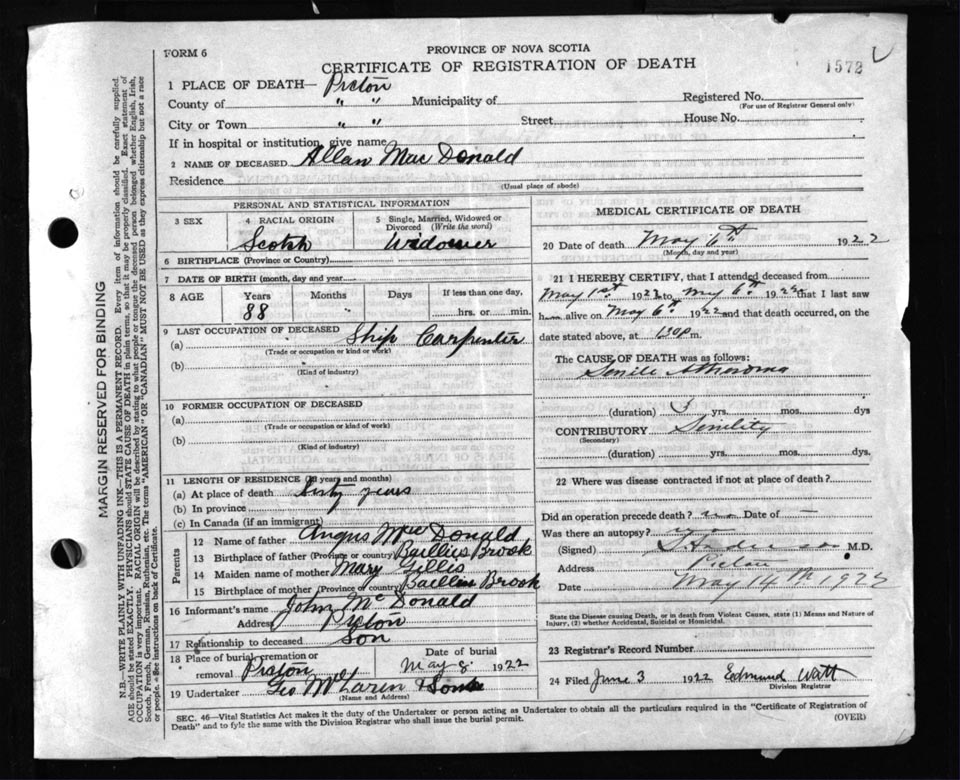 FORM 6
PROVINCE OF NOVA SCOTIA
CERTIFICATE OF REGISTRATION OF DEATH
1572
1 PLACE OF DEATH— Pictou
County of " " Municipality of
Registered No.
(For use of Registrar General only)
City or Town " " Street House No.
If in hospital or institution, give name
2 NAME OF DECEASED Allan MacDonald
Residence
(Usual place of abode)
PERSONAL AND STATISTICAL INFORMATION
3 SEX
4 RACIAL ORIGIN
Scotch
5 Single, Married, Widowed or Divorced (Write the word)
Widower
6 BIRTHPLACE (Province or Country)
7 DATE OF BIRTH (month, day and year)
8 AGE Years Months Days If less than one day,
88 hrs. or min.
9 LAST OCCUPATION OF DECEASED
(a) Ship Carpenter
(Trade or occupation or kind of work)
(b)
(Kind of industry)
10 FORMER OCCUPATION OF DECEASED
(a)
(Trade or occupation or kind of work)
(b)
(Kind of industry)
11 LENGTH OF RESIDENCE (In years and months)
(a) At place of death Sixty years
(b) In province
(c) In Canada (if an immigrant)
Parents
12 Name of father Angus MacDonald
13 Birthplace of father (Province or country) Baillies Brook
14 Maiden name of mother Mary Gillis
15 Birthplace of mother (Province or country) Baillies Brook
16 Informant's name John McDonald
Address Pictou
17 Relationship to deceased Son
18 Place of burial, cremation or removal Pictou
Date of burial
May 8 1922
19 Undertaker Geo McLaren & Sons
(Name and Address)
MEDICAL CERTIFICATE OF DEATH
20 Date of death May 6th 1922
(Month, day and year)
21 I HEREBY CERTIFY, that I attended deceased from
May 1st 1922 to May 6th 1922 that I last saw
him alive on May 6th 1922 and that death occurred, on the
date stated above, at 1.30 p m.
The CAUSE OF DEATH was as follows:
Senile Atheroma
(duration) 3 yrs. mos. dys
CONTRIBUTORY Senility
(Secondary)
(duration) yrs. mos. dys.
22 Where was disease contracted if not at place of death?
Did an operation precede death? no Date of —
Was there an autopsy? no
(Signed) M.D.
Address Pictou
Date May 14th 1922
State the Disease causing Death, or in death from Violent Causes, state (1) Means and Nature of Injury, (2) whether Accidental, Suicidal or Homicidal.
23 Registrar's Record Number
24 Filed June 3 1922 Edmund Watt
Division Registrar
SEC. 46—Vital Statistics Act makes it the duty of the Undertaker or person acting as Undertaker to obtain all the particulars required in the "Certificate of Registration of
Death" and to fyle the same with the Division Registrar who shall issue the burial permit.
(OVER)
MARGIN RESERVED FOR BINDING
N.B.—WRITE PLAINLY WITH UNFADING INK—THIS IS A PERMANENT RECORD. Every item of information should be carefully supplied.
AGE should be stated EXACTLY. PHYSICIANS should STATE CAUSE OF DEATH in plain terms, so that it may be properly classified. Exact statement of
OCCUPATION is very important. RACIAL ORIGIN will be described by stating to what people or tongue the deceased person belonged whether English, Irish,
Scotch, French, German, Russian, Ruthenian, etc. The terms "AMERICAN" OR "CANADIAN" MUST NOT BE USED as they express citizenship but not a race
or people. See instructions on back of Certificate.